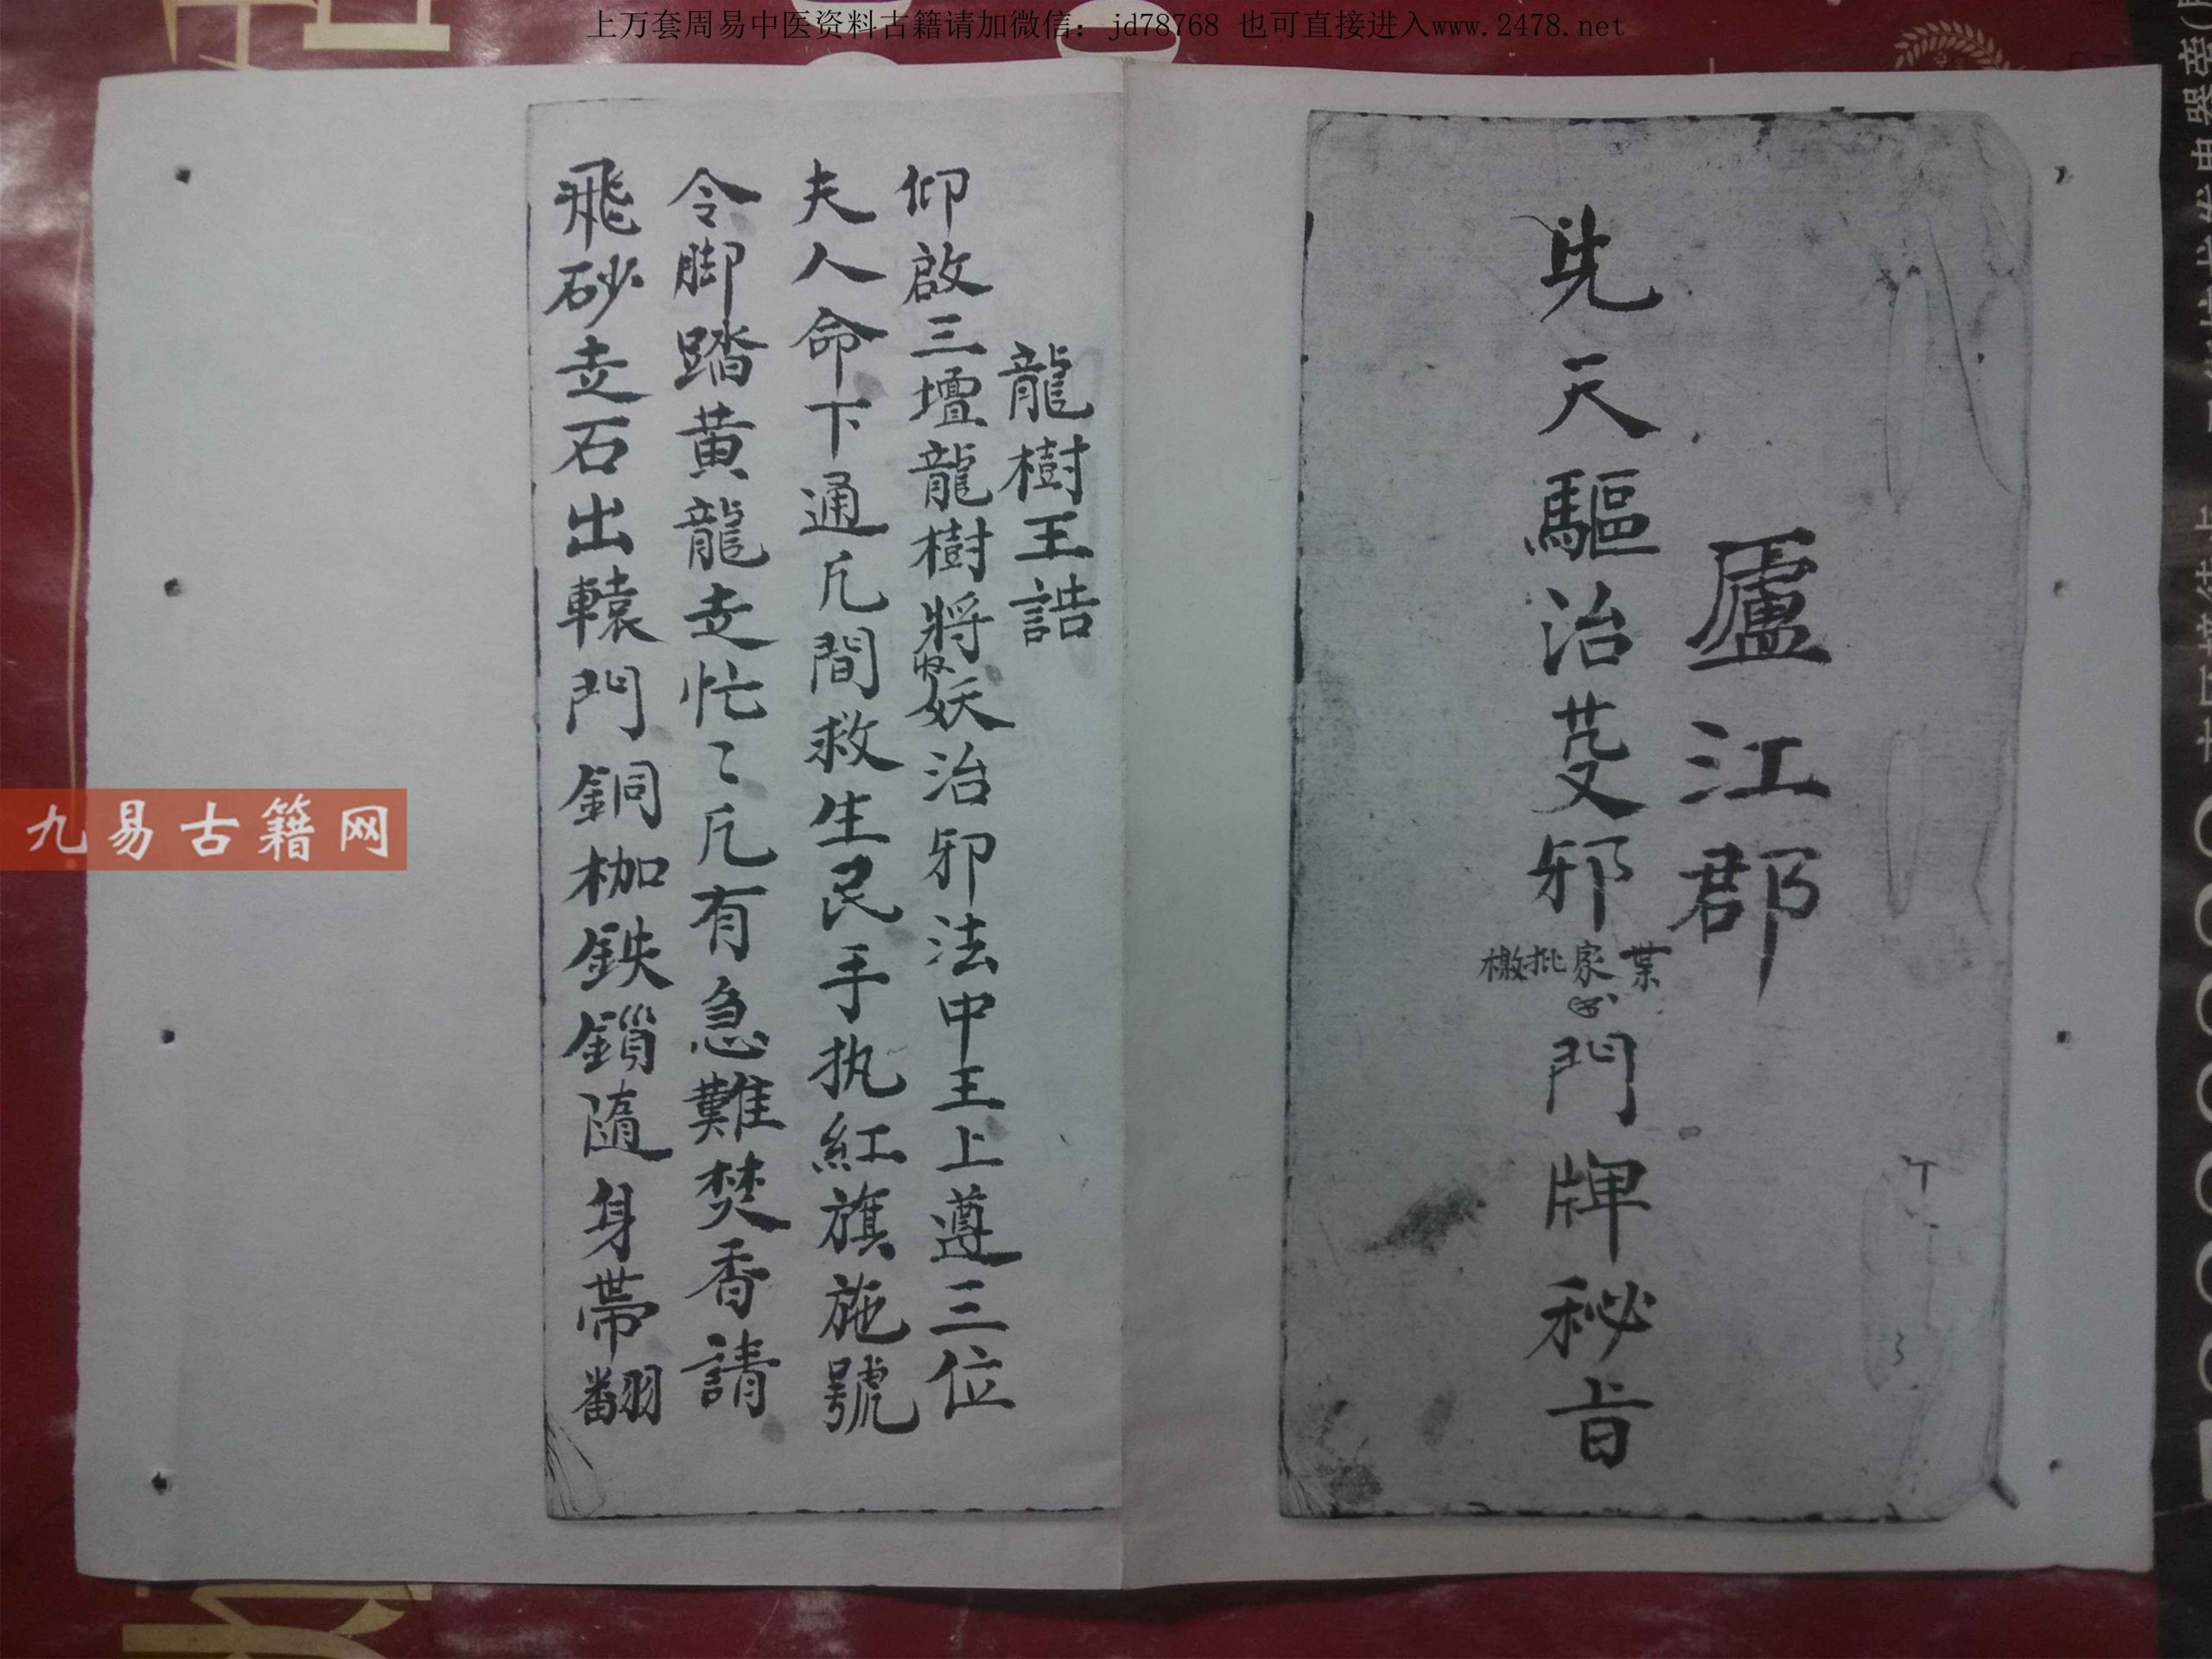 上万套周易中医资料古籍请加微信：jd78768 也可直接进入www.2478.net
廬江郡
先天驅治邪門牌秘旨
葉家批檄
龍樹王誥
仰啟三壇龍樹將收妖治邪法中王上遵三位
夫人命下通凡間救生民手执紅旗施號
令脚踏黄龍走忙〻凡有急難焚香請
飛砂走石出轅門銅枷鉄鎖隨身帶翻
九易古籍网